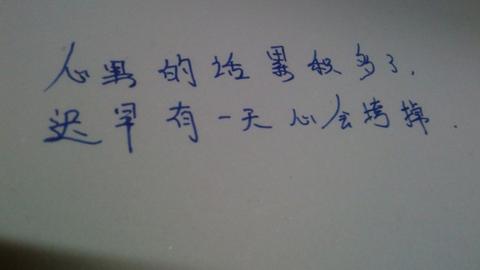 心里的话累积多了,
迟早有一天心会垮掉.